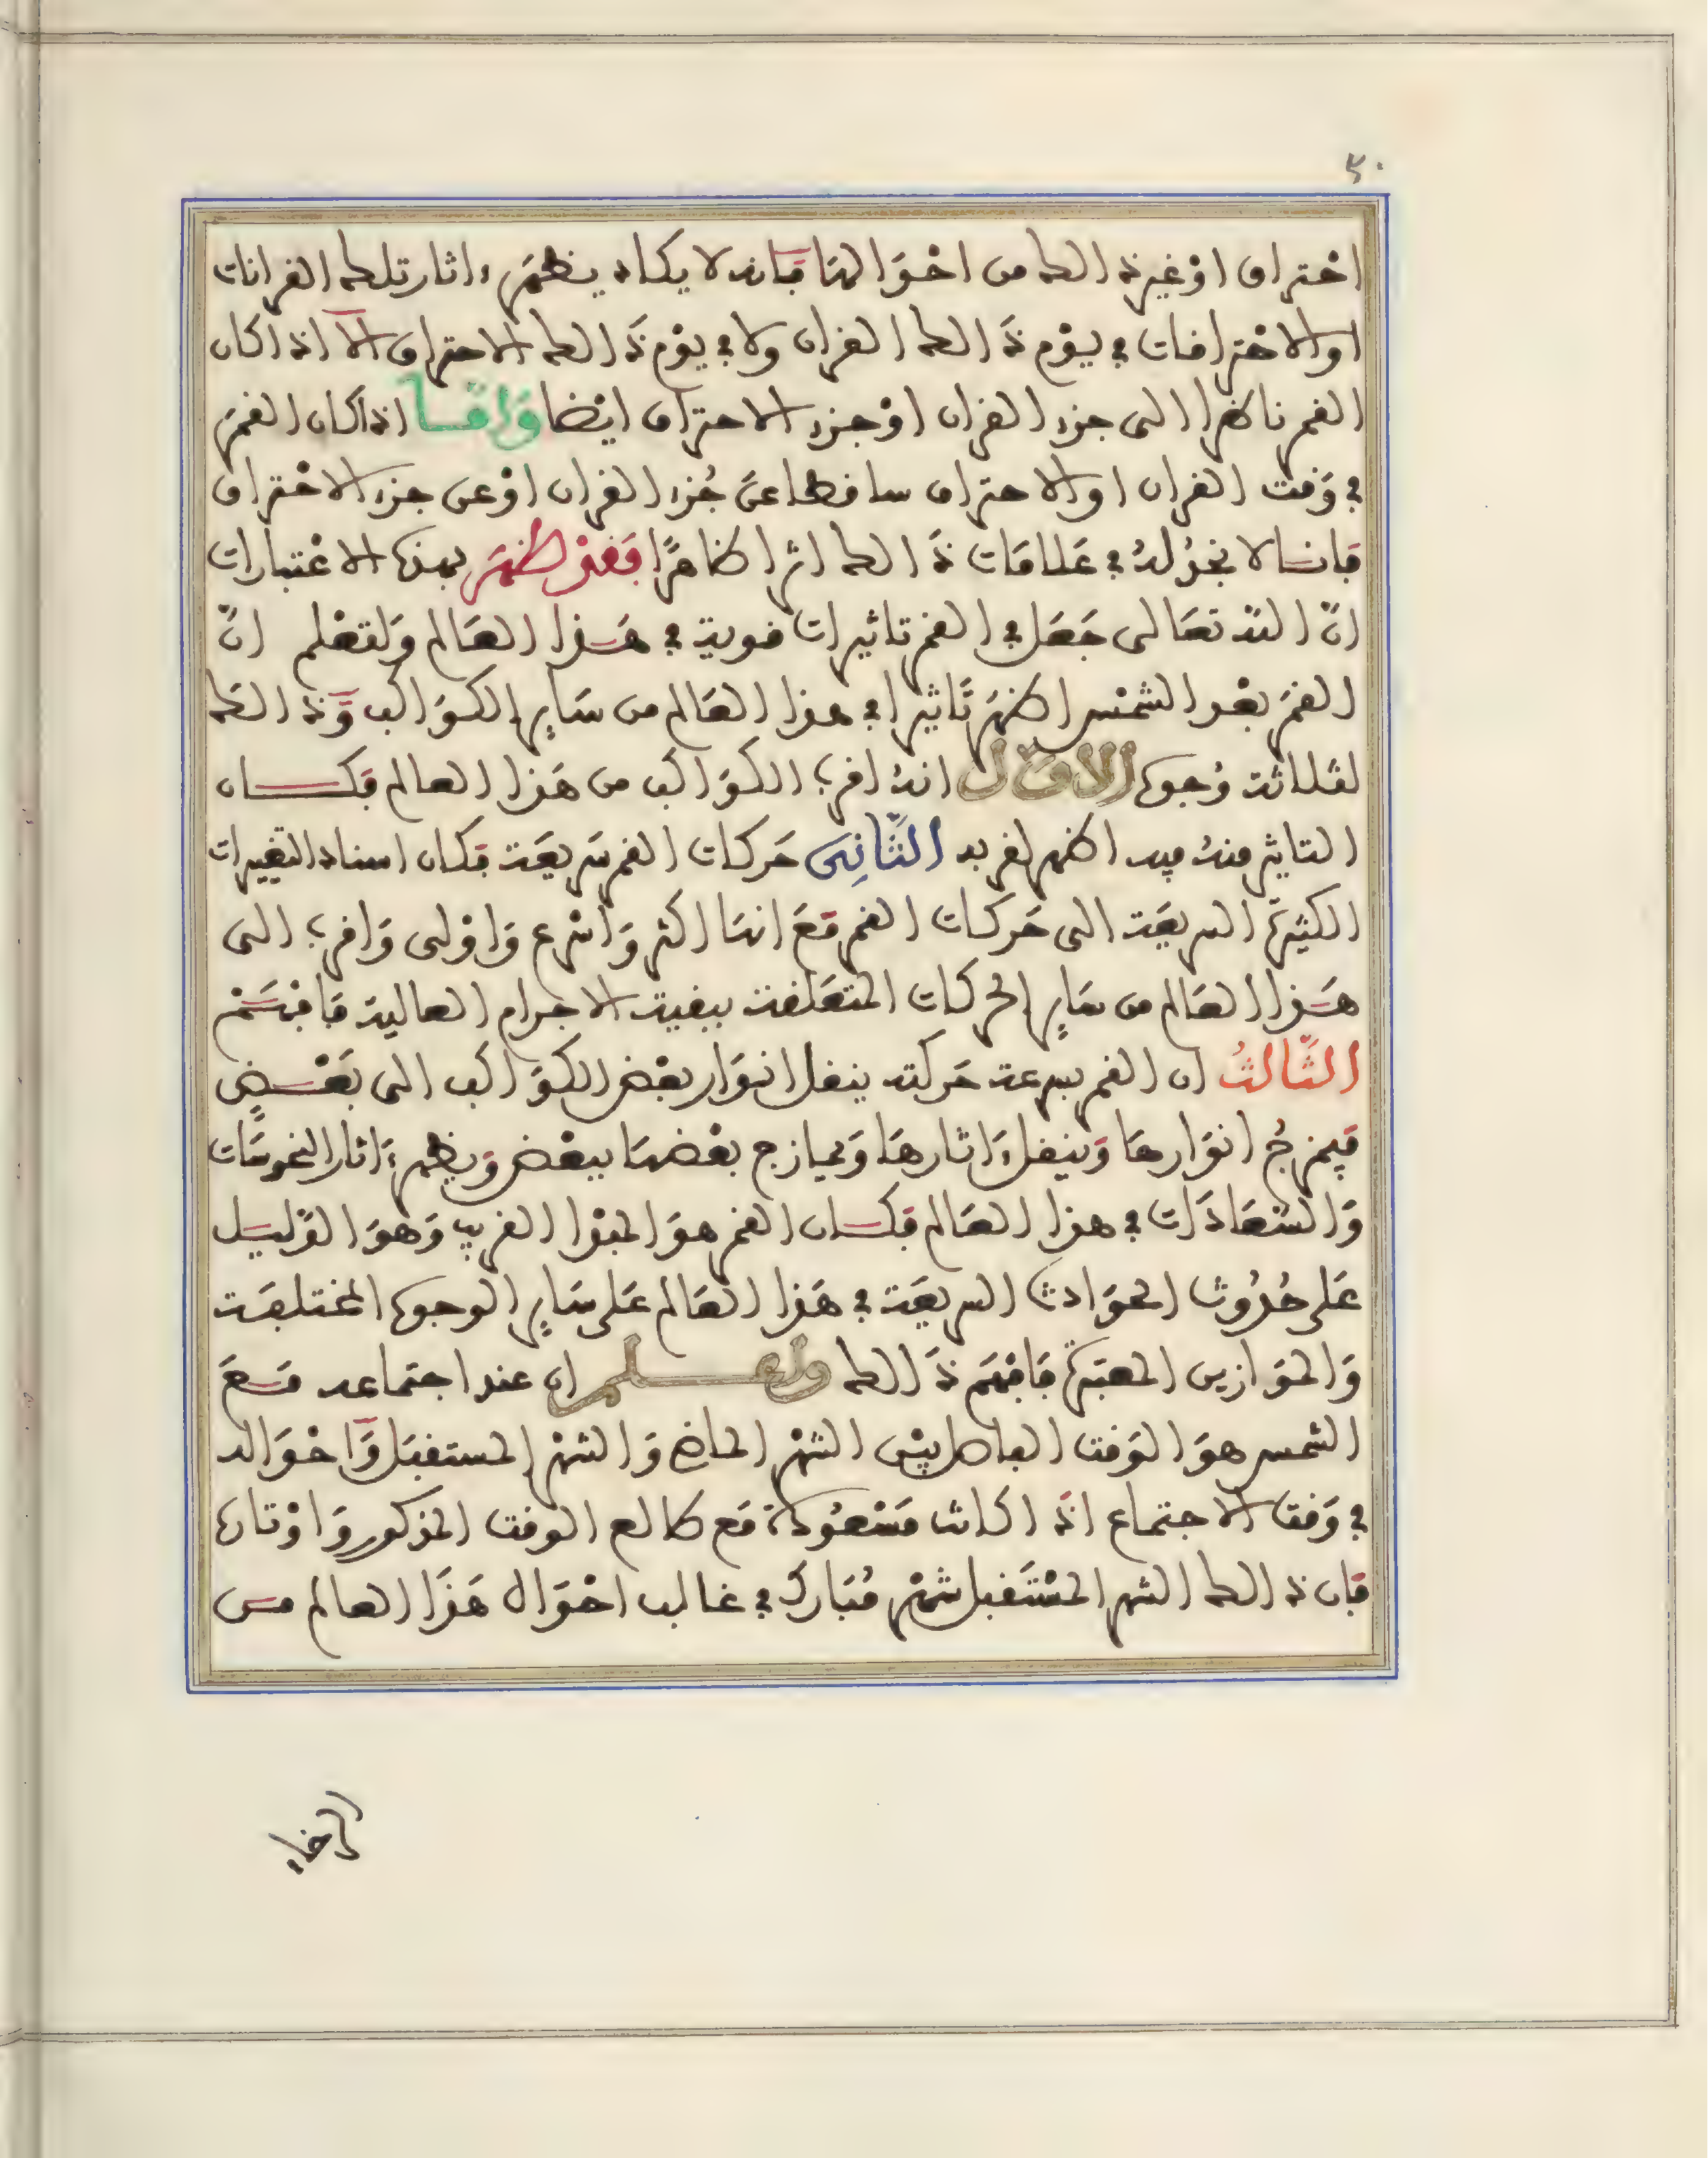 ٤٠
احتراق اوْ غير ذالك من احْوَالها فَانه لا يكاد يظهَر ءاثار تلك القرانات
اوالاحْتراقات في يوْم ذَالك القران ولا في يوْم ذَالك الاحتراق الا اذاكان
القمر ناظرا الى جزء القران اوْ جزء الاحتراق ايْضا وَامَّا اذاكان القمَر
في وَقت القران اوالاحتراق ساقطا عَن جُزء القران اوْ عن جزء الاحْتراق
فانا لا نجدُ لهُ في عَلامَات ذَالك اثرا ظاهرًا فَقدْ ظهَر بهذه الاعْتبارات
انّ الله تعَالى جَعَل في القمر تاثيرات قوية في هَذا العَالم وَلتعْلم انَّ
القمَر بعْد الشمْس اظهَر تَاثيرا في هذا العَالم من سَاير الكوَاكب وَذالكَ
لثلاثة وُجوه الاوَّل انهُ اقرب الكوَاكب من هَذا العالم فكان
التاثير منهُ فيه اظهر لقربه الثَّانِى حَركات القمر سَريعَة فكان اسناد التغييرات
الكثيرة السريعَة الى حَركات القمر مَعَ انها اكثر وَاسْرع وَاوْلى وَاقرب الى
هَذا العَالم من سَاير الحركات المتعَلقة ببقية الاجرام العالية فَافهَمْ
الثَّالثُ ان القمر بسرعة حَركته ينقل انوَار بعْض الكوَاكب الى بَعْضٍ
فيمزجُ انوَارهَا وَينقل ءاثارهَا وَيمازج بعْضهَا ببعْض وَيظهر ءاثار النحُوسَات
وَالسّعَادَات في هذا العَالم فكان القمر هوَ المبْدا القريب وَهوَ الدَّليل
عَلى حُدُوث الحوَادث السريعَة في هَذا العَالم عَلى سَاير الوجوه المختلفَة
وَالموَازين المعتبَرة فَافْهَم ذَالك وَاعلم ان عند اجتماعه مَعَ
الشمس هوَ الوَقت الفاصل بيْن الشهْر الماضي وَالشهْر المستقبَل وَاحْوَاله
في وَقت الاجتماع اذَا كانت مَسْعُودَة مَع طالع الوقت المذكور وَاوْتاده
فان ذالك الشهر المسْتَقبل شهْر مُبَارك في غالب احْوَال هَذَا العالم من
الرخاء